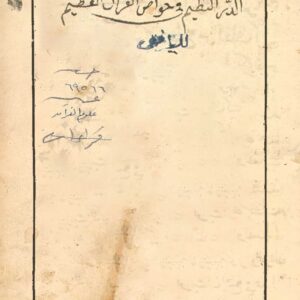 الدر النظيم في خواص القرآن العظيم
لليافعي
٦٩٥٦٦
علوم القرآن